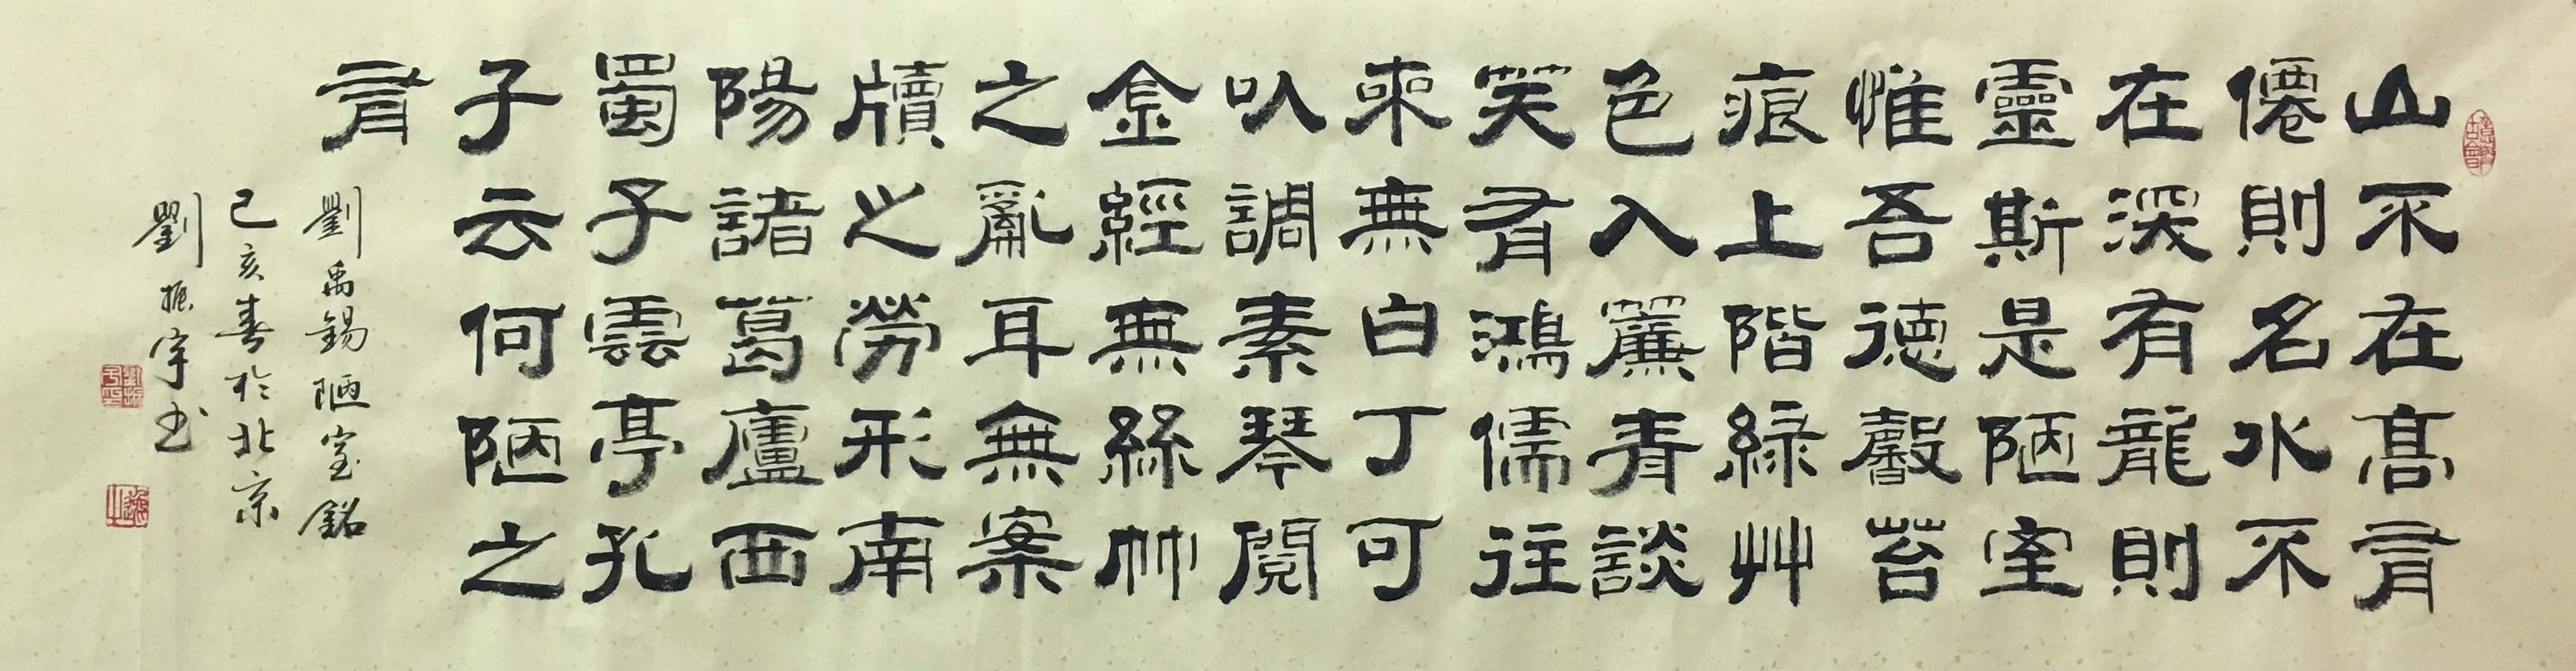 山不在高有
僊則名水不
在深有龍則
靈斯是陋室
惟吾德馨苔
痕上階綠艸
色入簾青談
笑有鴻儒往
來無白丁可
以調素琴閱
金經無絲竹
之亂耳無案
牘之勞形南
陽諸葛廬西
蜀子雲亭孔
子云何陋之
有
劉禹錫陋室銘
己亥春於北京
劉振宇书